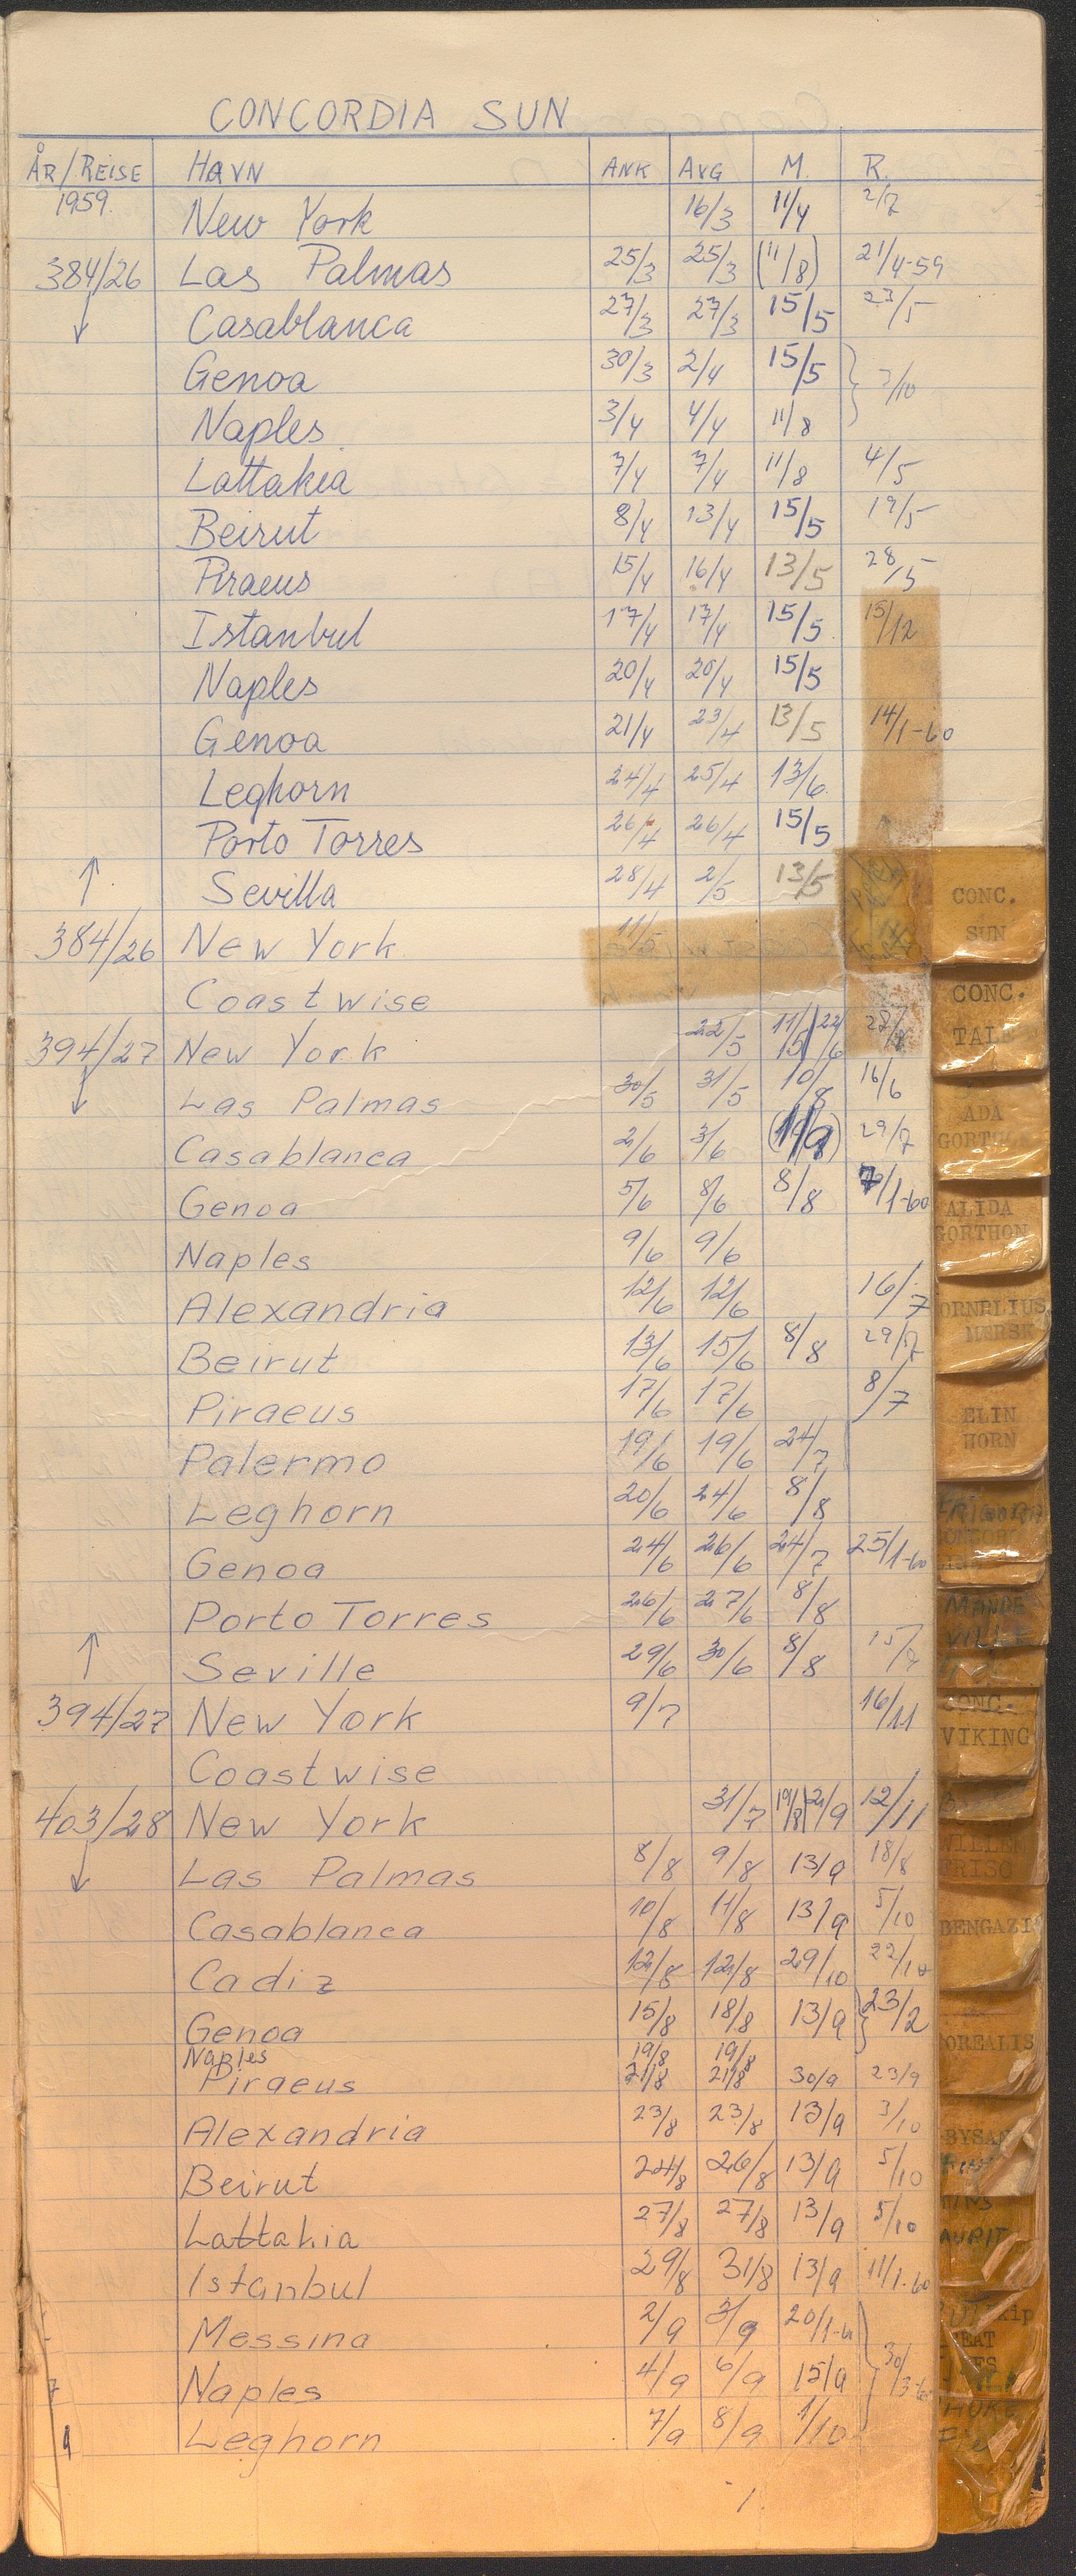 CONCORDIA SUN
ÅR/REISE HAVN ANK AVG M. R.
1959. New York 16/3 11/4 2/7
384/26 Las Palmas 25/3 25/3 (11/8) 21/4-59
↓ Casablanca 27/3 27/3 15/5 23/5
Genoa 30/3 2/4 15/5
Naples 3/4 4/4 11/8
Lattakia 7/4 7/4 11/8 4/5
Beirut 8/4 13/4 15/5 19/5
Piraeus 15/4 16/4 13/5 28/5
Istanbul 17/4 17/4 15/5 15/12
Naples 20/4 20/4 15/5
Genoa 21/4 23/4 13/5 14/1-60
Leghorn 24/4 25/4 13/6
Porto Torres 26/4 26/4 15/5
↑ Sevilla 28/4 2/5 13/5
384/26 New York 11/5
Coastwise
394/27 New York 22/5 11/5 22/6
↓ Las Palmas 30/5 31/5 10/8 16/6
Casablanca 2/6 3/6 29/7
Genoa 5/6 8/6 8/8 7/1-60
Naples 9/6 9/6
Alexandria 12/6 12/6 16/7
Beirut 13/6 15/6 8/8 29/7
Piraeus 17/6 17/6 8/7
Palermo 19/6 19/6 24/7
Leghorn 20/6 24/6 8/8
Genoa 24/6 26/6 24/7 25/1-60
Porto Torres 26/6 27/6 8/8
↑ Seville 29/6 30/6 8/8
394/27 New York 9/7 16/11
Coastwise
403/28 New York 31/7 19/8 21/9 12/11
↓ Las Palmas 8/8 9/8 13/9 18/8
Casablanca 10/8 11/8 13/9 5/10
Cadiz 12/8 12/8 29/10 22/10
Genoa 15/8 18/8 13/9 } 23/2
Naples 19/8 19/8
Piraeus 21/8 21/8 30/9 23/9
Alexandria 23/8 23/8 13/9 3/10
Beirut 24/8 26/8 13/9 5/10
Lattakia 27/8 27/8 13/9 5/10
Istanbul 29/8 31/8 13/9 11/1-60
Messina 2/9 3/9 20/1-60
Naples 4/9 6/9 15/9 } 30/3-60
Leghorn 7/9 8/9 1/10
CONC.
SUN
CONC.
TALE
ADA
ALIDA
GORTHON
MERSK
ELIN
HORN
MANDE
VILLE
CONC.
VIKING